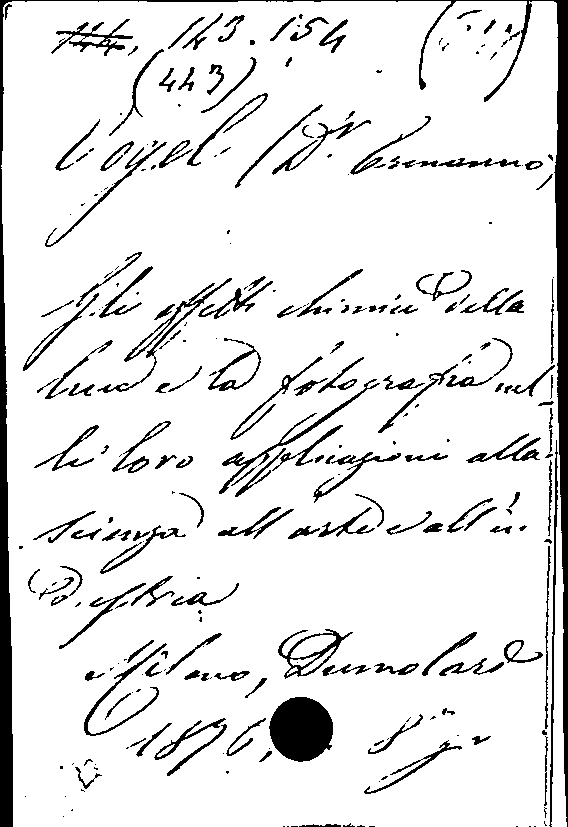 144, 143.154
(443)
Vogel (Dr. Ermanno)
Gli effetti chimici della
luce e la fotografia nel-
le loro applicazioni alla
scienza all'arte e all'in
dustria
Milano, Dumolard
1876, 8°